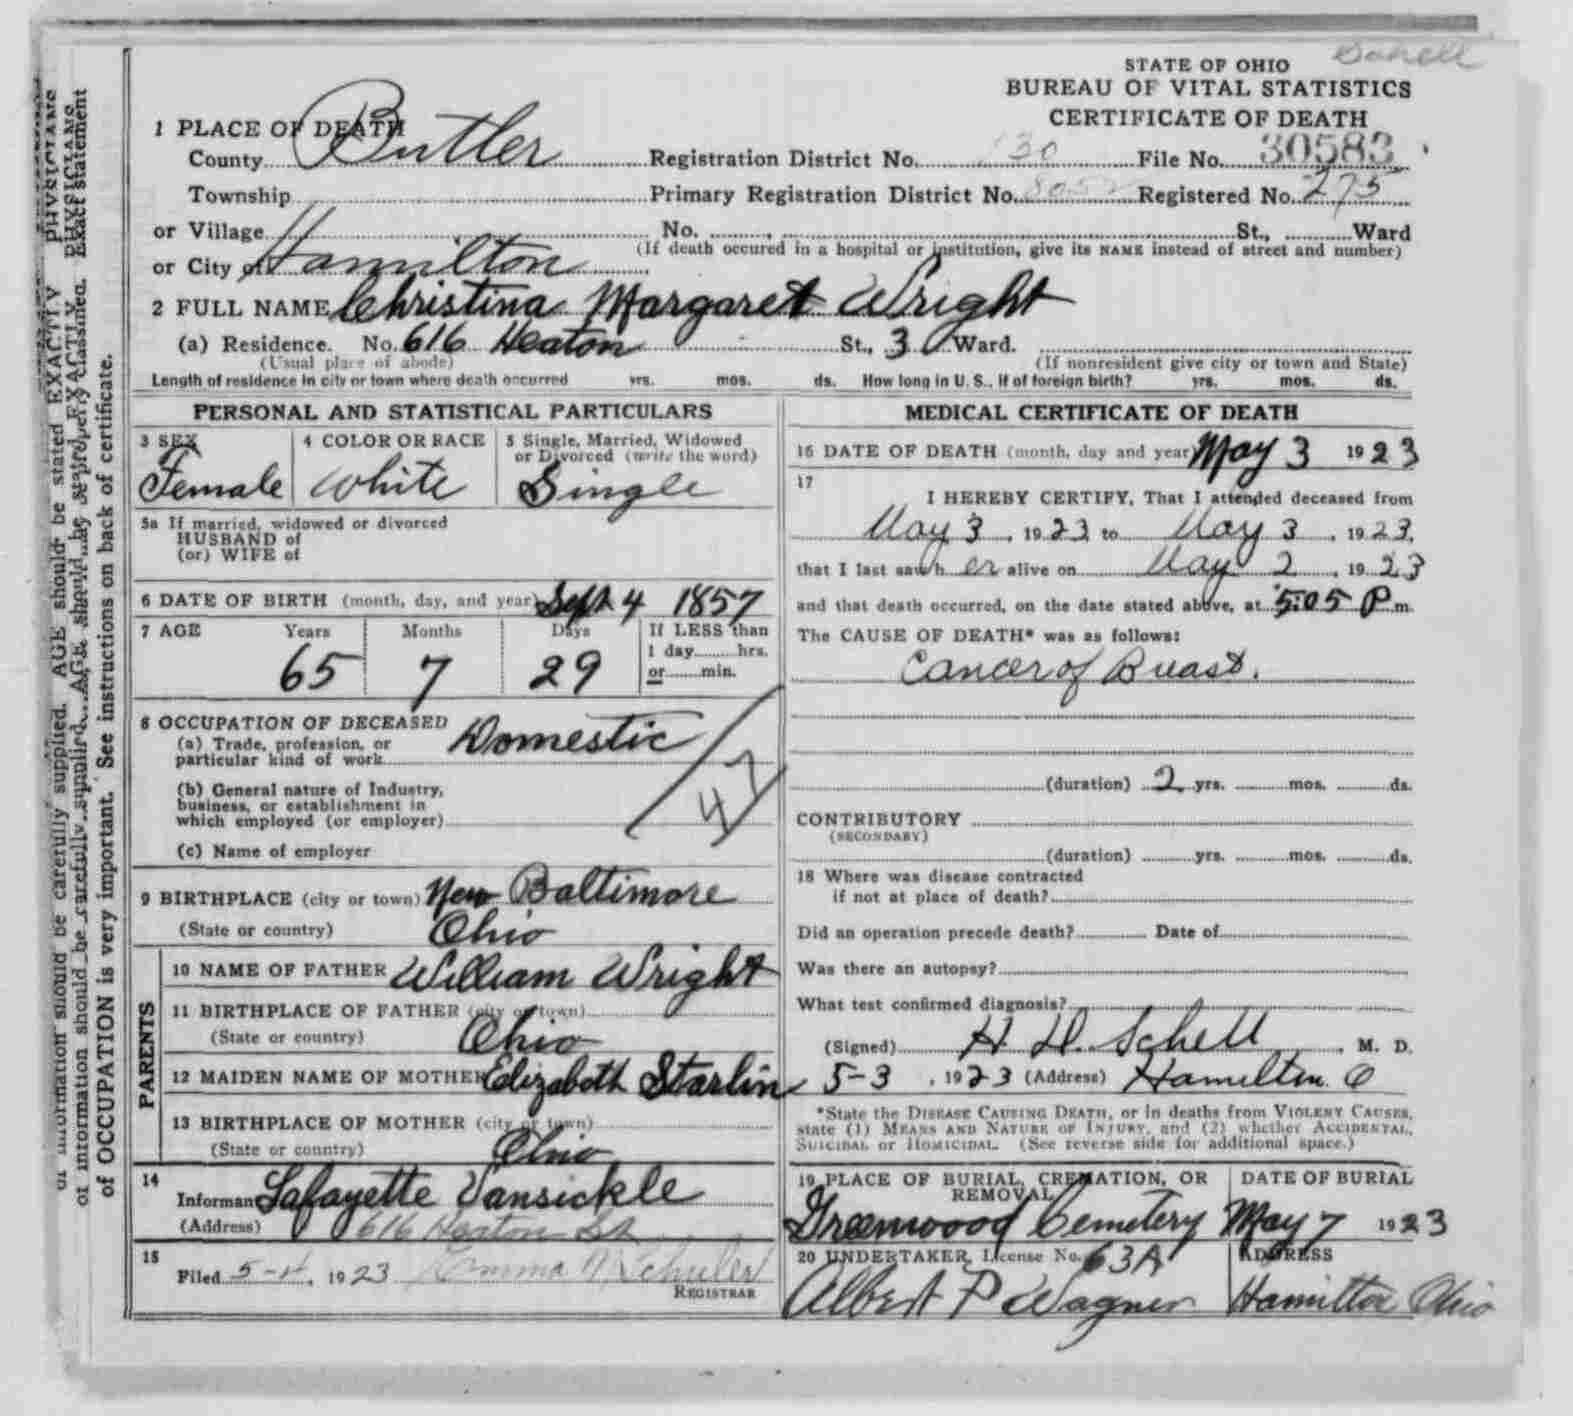 Schell
STATE OF OHIO
BUREAU OF VITAL STATISTICS
CERTIFICATE OF DEATH
1 PLACE OF DEATH
County Butler Registration District No. 130 File No. 30583
Township Primary Registration District No. 8052 Registered No. 275
or Village No. , St., Ward
(If death occured in a hospital or institution, give its NAME instead of street and number)
or City of Hamilton
2 FULL NAME Christina Margaret Wright
(a) Residence. No. 616 Heaton St., 3 Ward.
(Usual place of abode) (If nonresident give city or town and State)
Length of residence in city or town where death occurred yrs. mos. ds. How long in U. S., if of foreign birth? yrs. mos. ds.
PERSONAL AND STATISTICAL PARTICULARS
3 SEX 4 COLOR OR RACE 5 Single, Married, Widowed
or Divorced (write the word)
Female White Single
5a If married, widowed or divorced
HUSBAND of
(or) WIFE of
6 DATE OF BIRTH (month, day, and year) Sept 4 1857
7 AGE Years Months Days If LESS than
1 day hrs.
65 7 29 or min.
8 OCCUPATION OF DECEASED
(a) Trade, profession, or
particular kind of work Domestic
(b) General nature of Industry,
business, or establishment in
which employed (or employer)
(c) Name of employer
47
9 BIRTHPLACE (city or town) New Baltimore
(State or country) Ohio
PARENTS
10 NAME OF FATHER William Wright
11 BIRTHPLACE OF FATHER (city or town)
(State or country) Ohio
12 MAIDEN NAME OF MOTHER Elizabeth Starlin
13 BIRTHPLACE OF MOTHER (city or town)
(State or country) Ohio
14
Informant Lafayette Vansickle
(Address) 616 Heaton St
15
Filed 5-4, 1923 Emma Schuler
REGISTRAR
MEDICAL CERTIFICATE OF DEATH
16 DATE OF DEATH (month, day and year) May 3 1923
17
I HEREBY CERTIFY, That I attended deceased from
May 3, 1923 to May 3, 1923,
that I last saw h er alive on May 2, 1923
and that death occurred, on the date stated above, at 5:05 P m.
The CAUSE OF DEATH* was as follows:
Cancer of Breast.
(duration) 2 yrs. mos. ds.
CONTRIBUTORY
(SECONDARY)
(duration) yrs. mos. ds.
18 Where was disease contracted
if not at place of death?
Did an operation precede death? Date of
Was there an autopsy?
What test confirmed diagnosis?
(Signed) H. D. Schell, M. D.
5-3, 1923 (Address) Hamilton. O
*State the DISEASE CAUSING DEATH, or in deaths from VIOLENT CAUSES,
state (1) MEANS AND NATURE OF INJURY, and (2) whether ACCIDENTAL,
SUICIDAL or HOMICIDAL. (See reverse side for additional space.)
19 PLACE OF BURIAL, CREMATION, OR
REMOVAL
DATE OF BURIAL
Greenwood Cemetery May 7 1923
20 UNDERTAKER, License No. 63A ADDRESS
Albert P Wagner Hamilton Ohio
of information should be carefully supplied. AGE should be stated EXACTLY PHYSICIANS
of OCCUPATION is very important. See instructions on back of certificate.